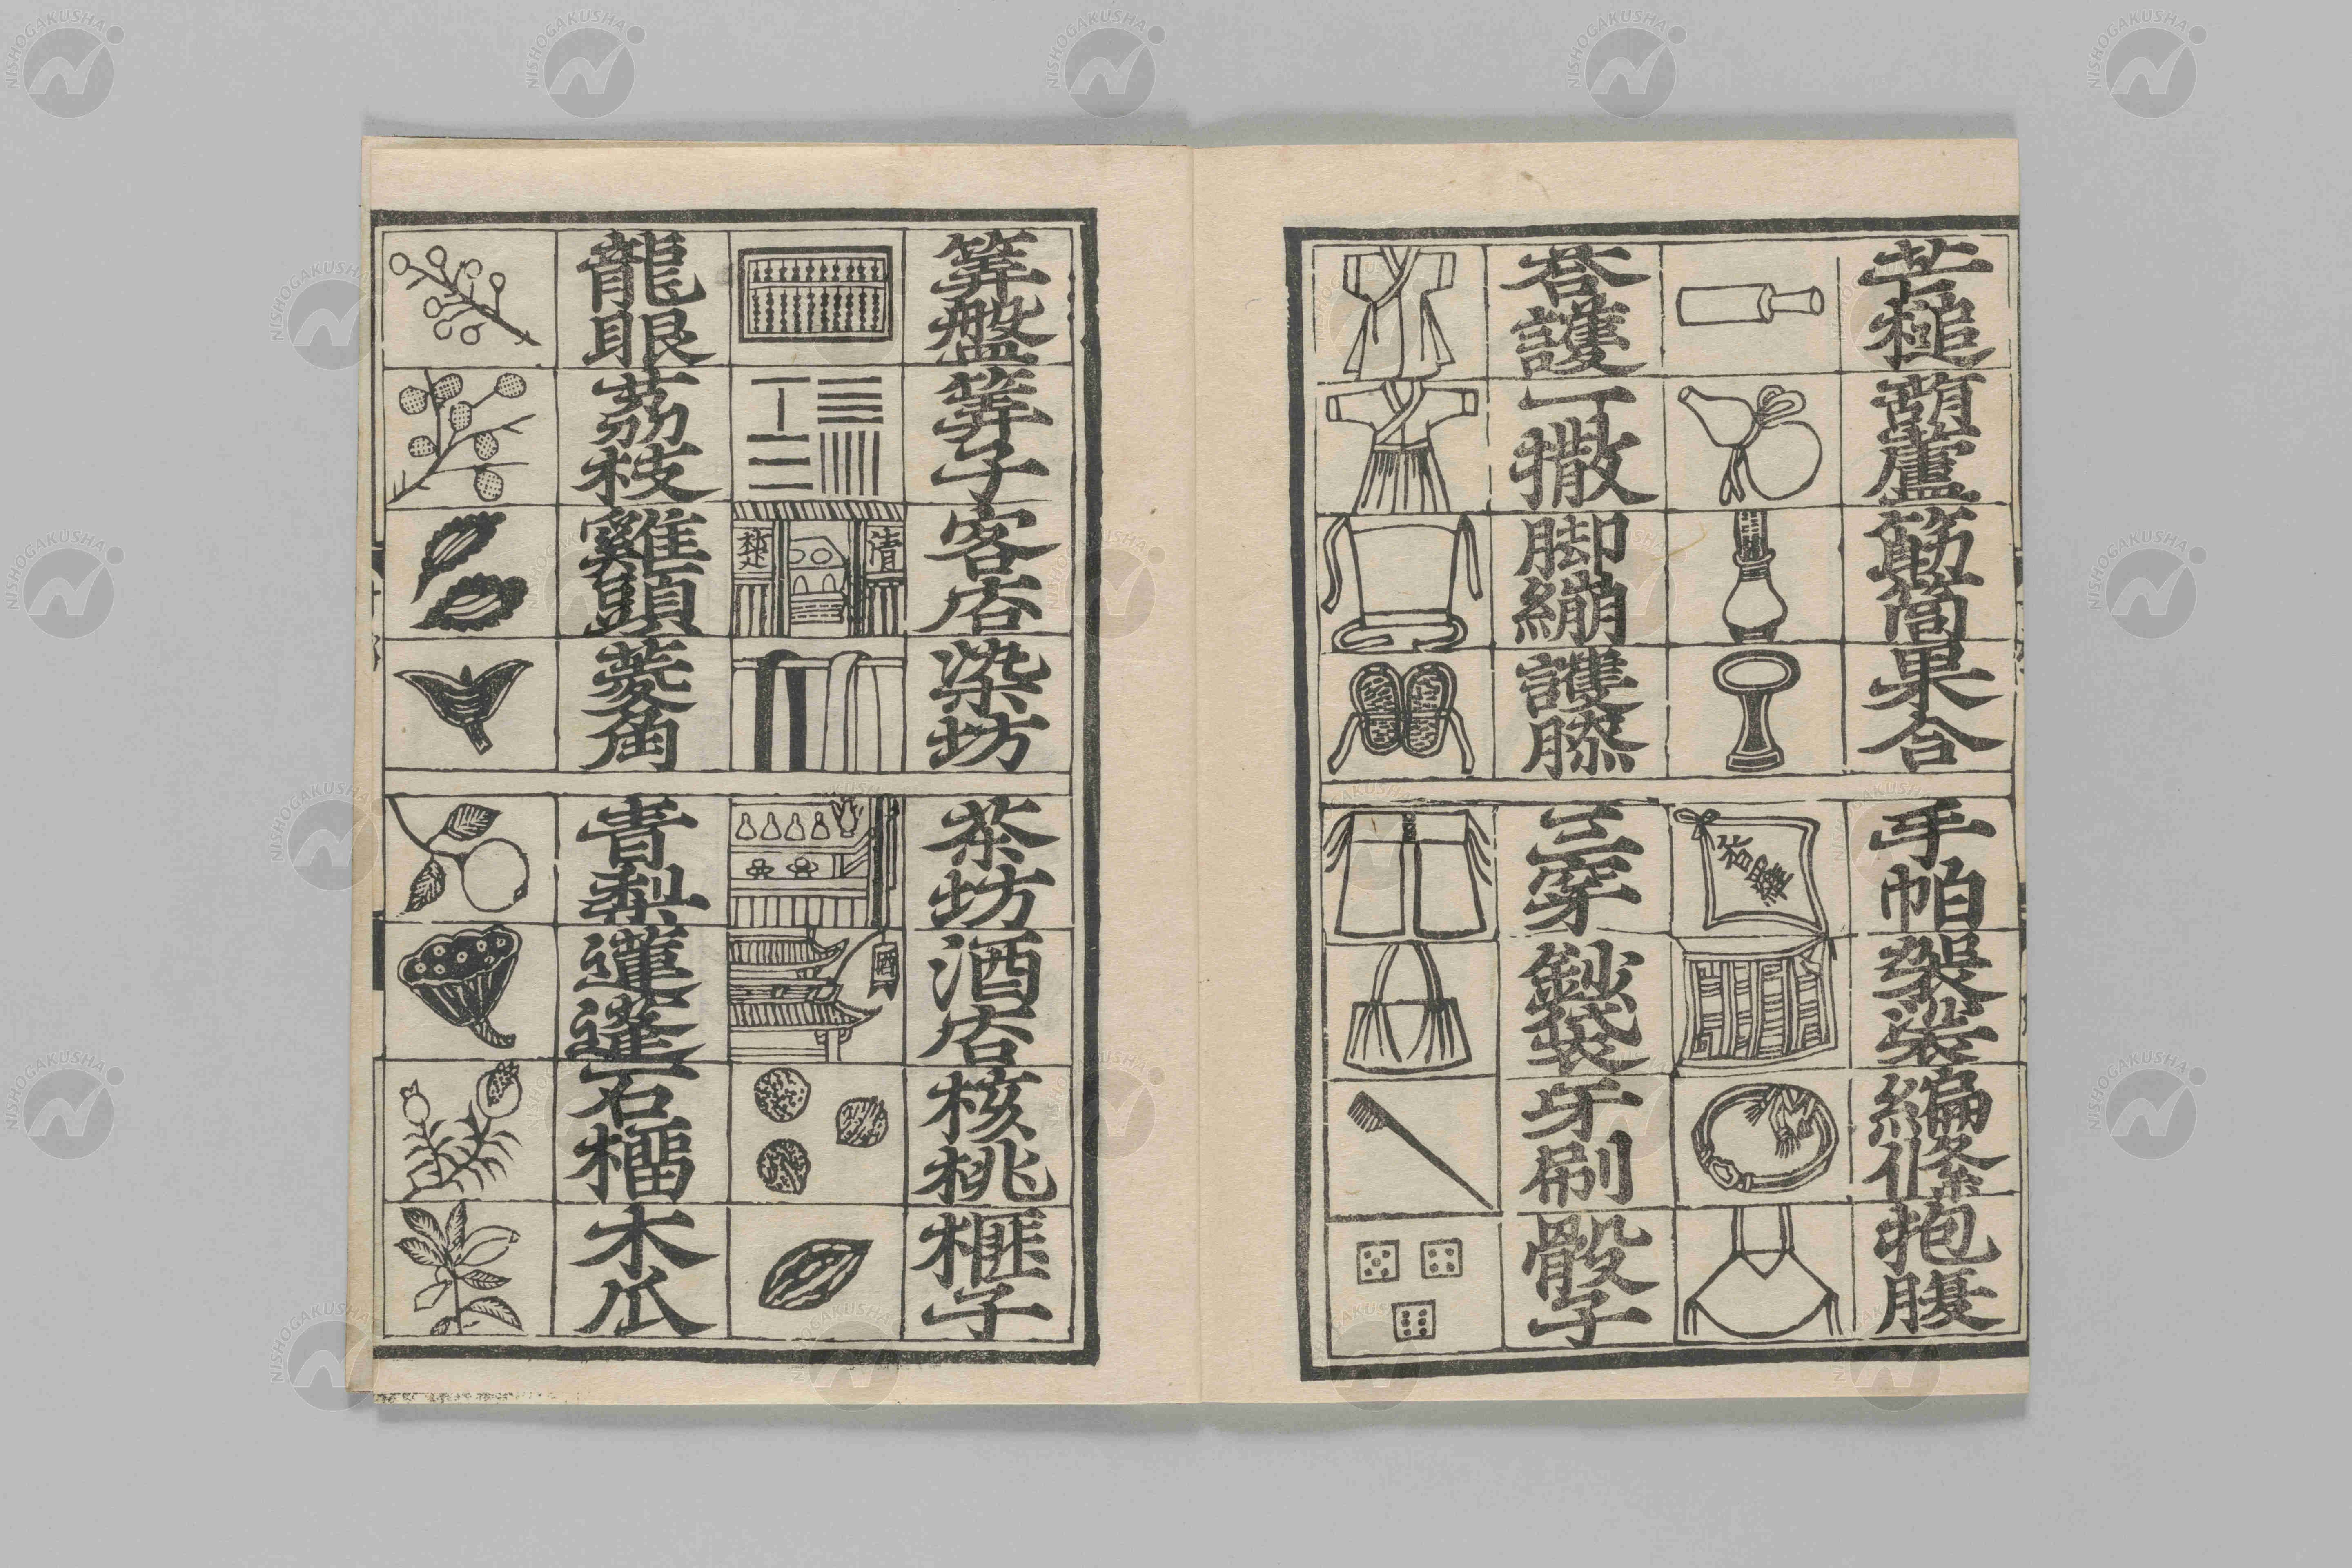 芒槌葫蘆筯筒果合
手帕袈裟編絛抱腹
香羅
荅護一撒脚綳護膝
三穿鈔袋牙刷骰子
筭盤筭子客店染坊
茶坊酒店核桃榧子
清
楚
酒
龍眼荔枝雞頭菱角
青梨蓮蓬石榴木瓜
NISHOGAKUSHA